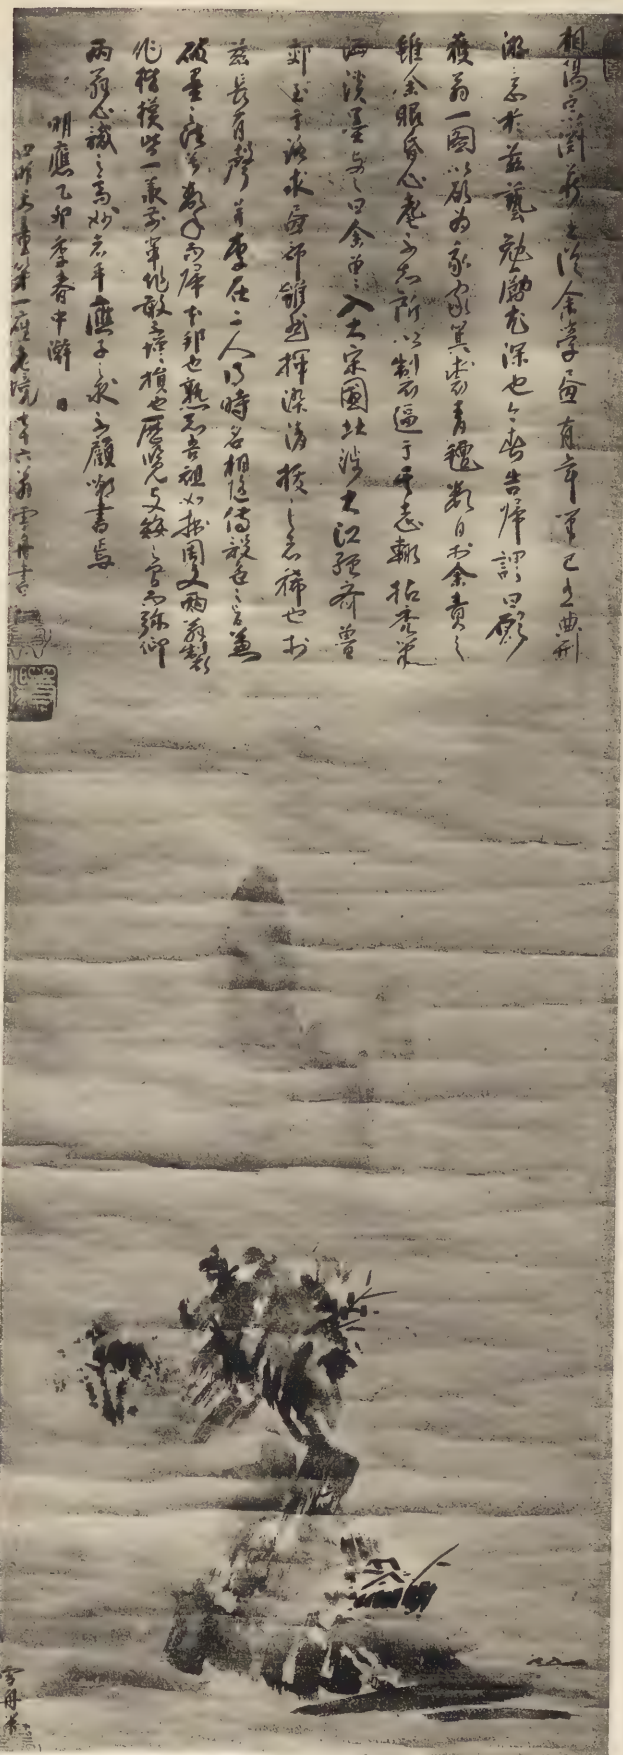 相陽宗淵蔵主從余學畫有年筆已有典刑
游意於茲藝勉勵尤深也今春告帰謂曰願
獲翁一圖以欲為我家箕裘青氈數日於余責之
雖余眼昏心耄不知所以製逼于其志輙拈禿筆
洒淡墨與之曰余曽入大宋國北渉大江經齊魯
郊至于洛求畫師雖然揮染清拔之者稀也於
茲長有聲并李在二人得時名相隨傳設色之旨兼
破墨之法兮數年而帰本邦也熟知吾祖如拙周文兩翁製
作楷模皆一承前輩作敢不増損也歷覽支倭之間而彌仰
兩翁心識之高妙者乎應子之求不顧嘲書焉
明應乙卯季春中澣日
四明天童第一座老境七十六翁雪舟書
雪舟筆